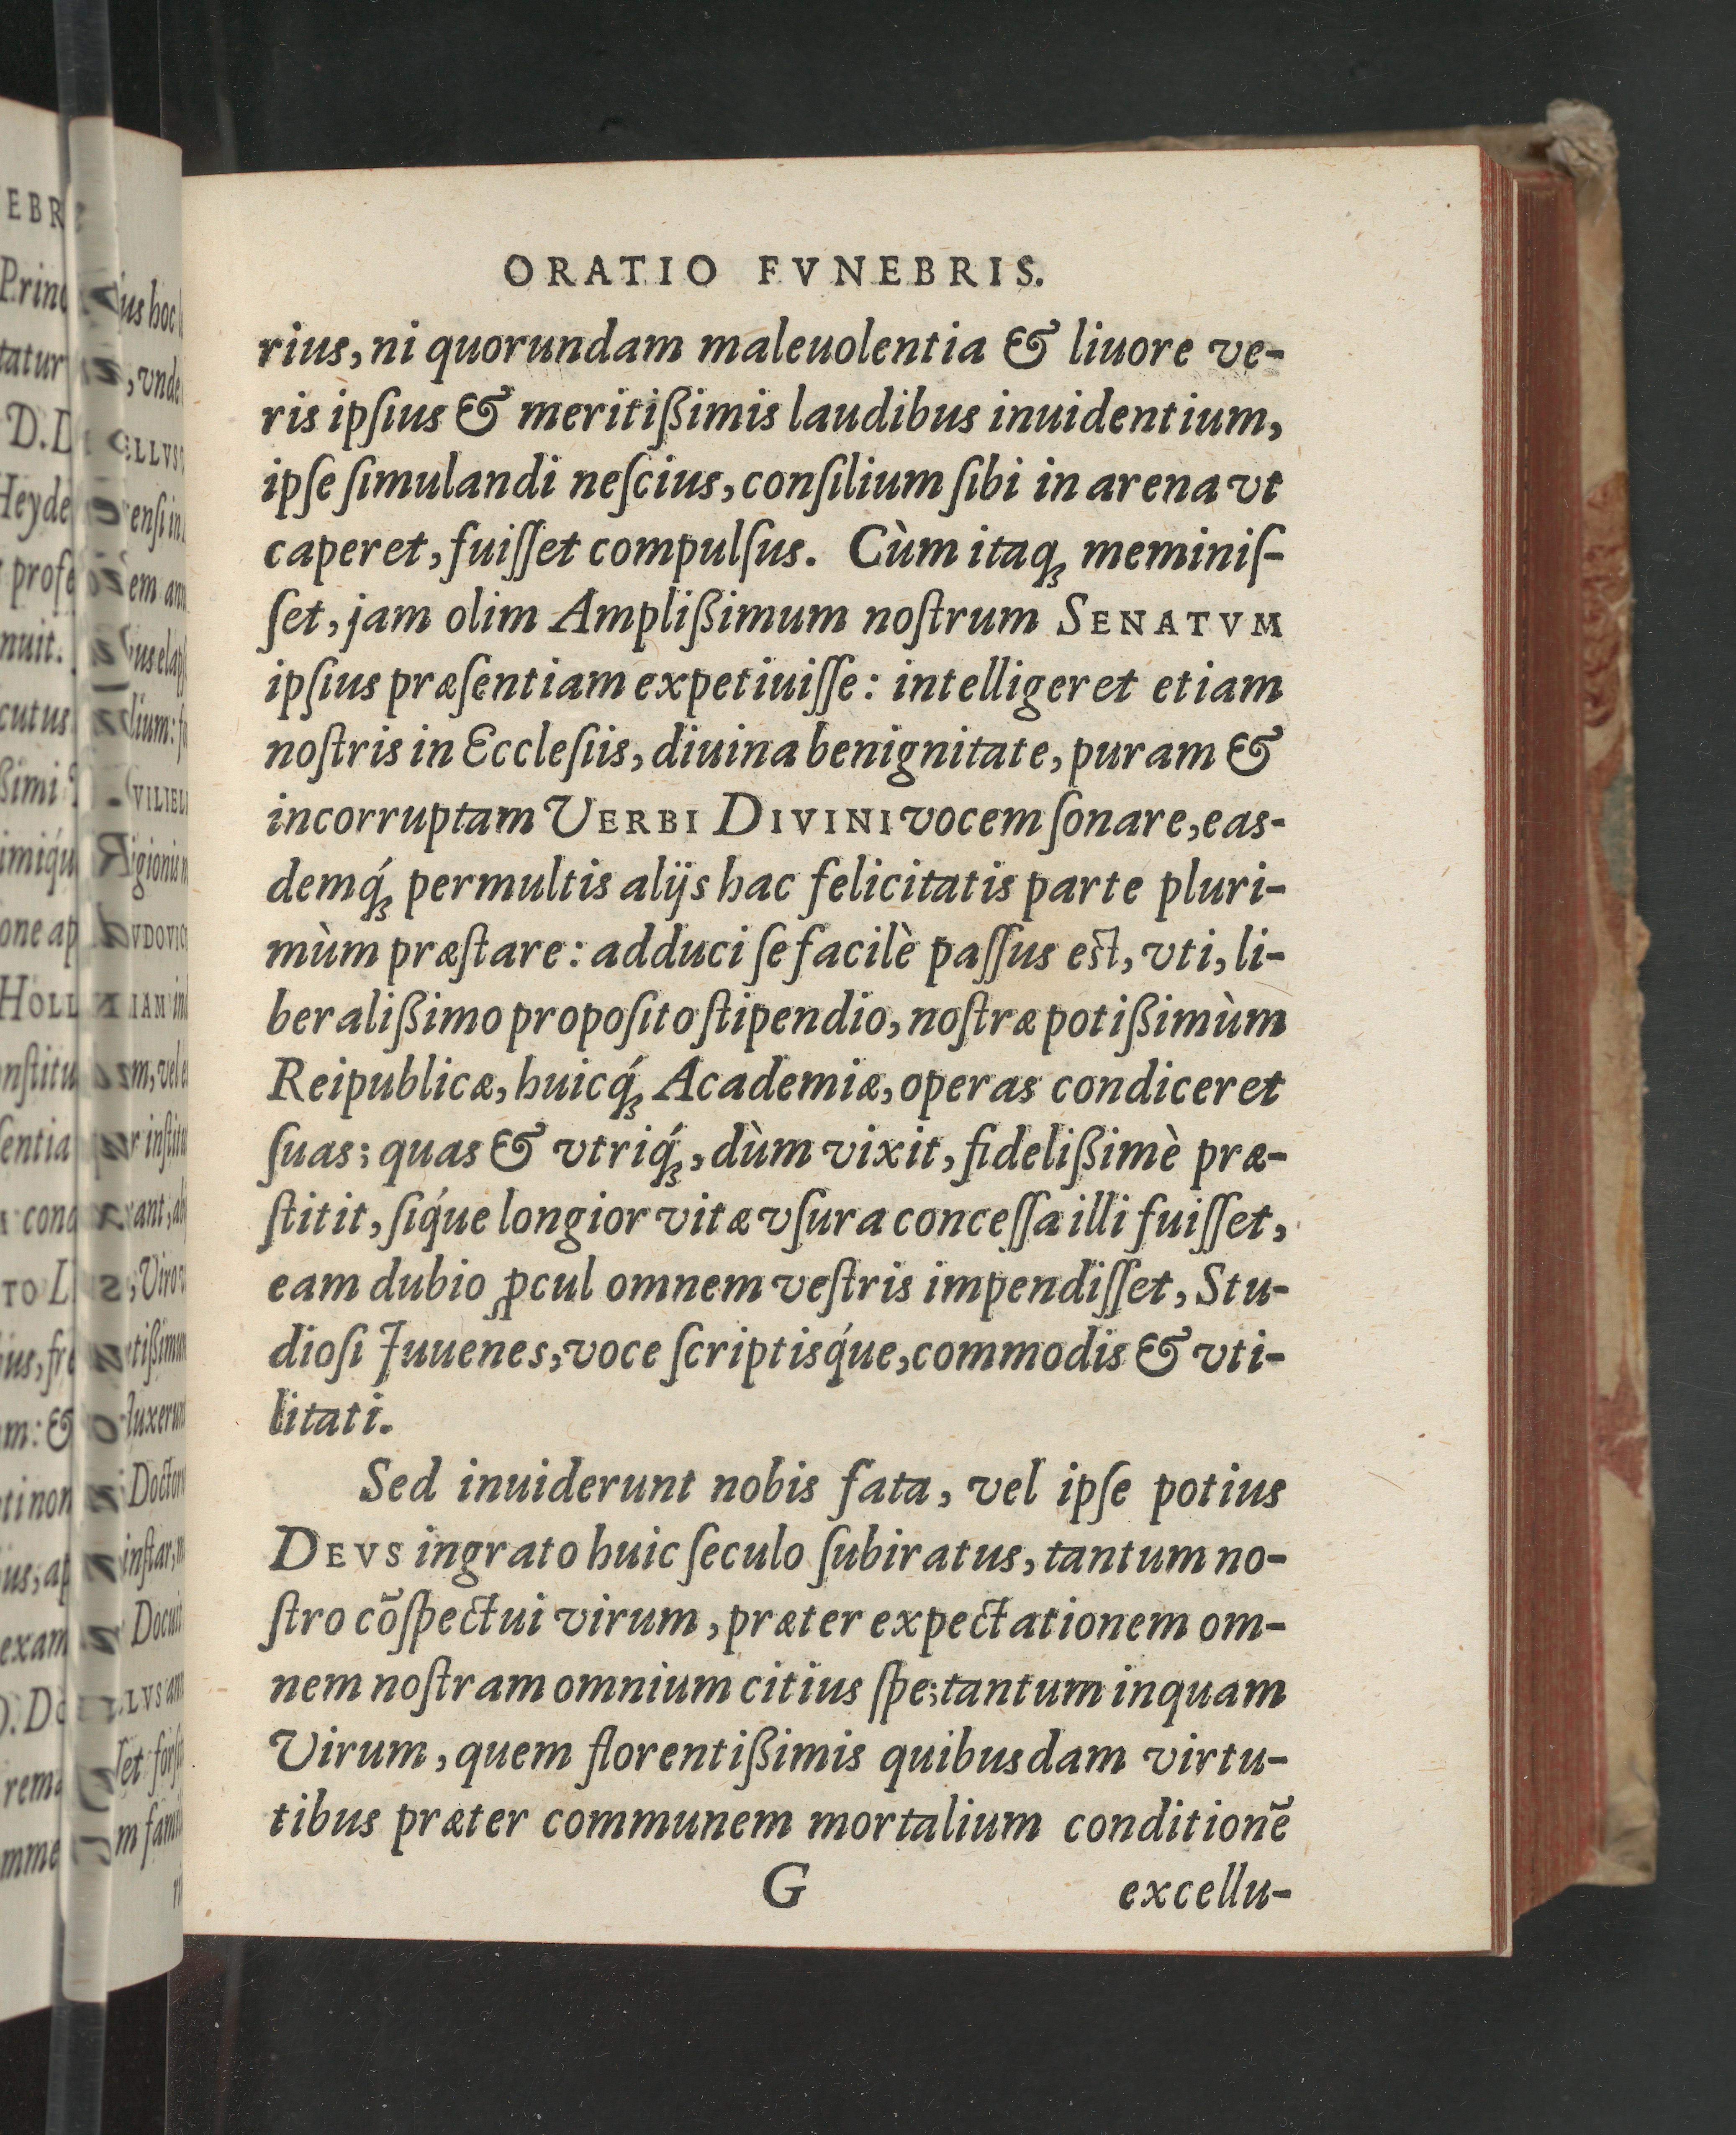 ORATIO FVNEBRIS.
rius, ni quorundam maleuolentia & liuore ve-
ris ipſius & meritißimis laudibus inuidentium,
ipſe ſimulandi neſcius, conſilium ſibi in arena vt
caperet, fuiſſet compulſus. Cùm itaqꝫ meminiſ-
ſet, jam olim Amplißimum noſtrum SENATVM
ipſius præſentiam expetiuiſſe: intelligeret etiam
noſtris in Eccleſiis, diuina benignitate, puram &
incorruptam VERBI DIVINI vocem ſonare, eas-
demq́ꝫ permultis alijs hac felicitatis parte pluri-
mùm præſtare: adduci ſe facilè paſſus est, vti, li-
beralißimo propoſito ſtipendio, noſtræ potißimùm
Reipublicæ, huicq́ꝫ Academiæ, operas condiceret
ſuas; quas & vtriq́ꝫ, dùm vixit, fidelißimè præ-
ſtitit, ſiq́ue longior vitæ vſura conceſſa illi fuiſſet,
eam dubio ꝓcul omnem veſtris impendiſſet, Stu-
dioſi Juuenes, voce ſcriptisq́ue, commodis & vti-
litati.
Sed inuiderunt nobis fata, vel ipſe potius
DEVS ingrato huic ſeculo ſubiratus, tantum no-
ſtro cõſpectui virum, præter expectationem om-
nem noſtram omnium citius ſpe; tantum inquam
Virum, quem florentißimis quibusdam virtu-
tibus præter communem mortalium conditionẽ
G excellu-